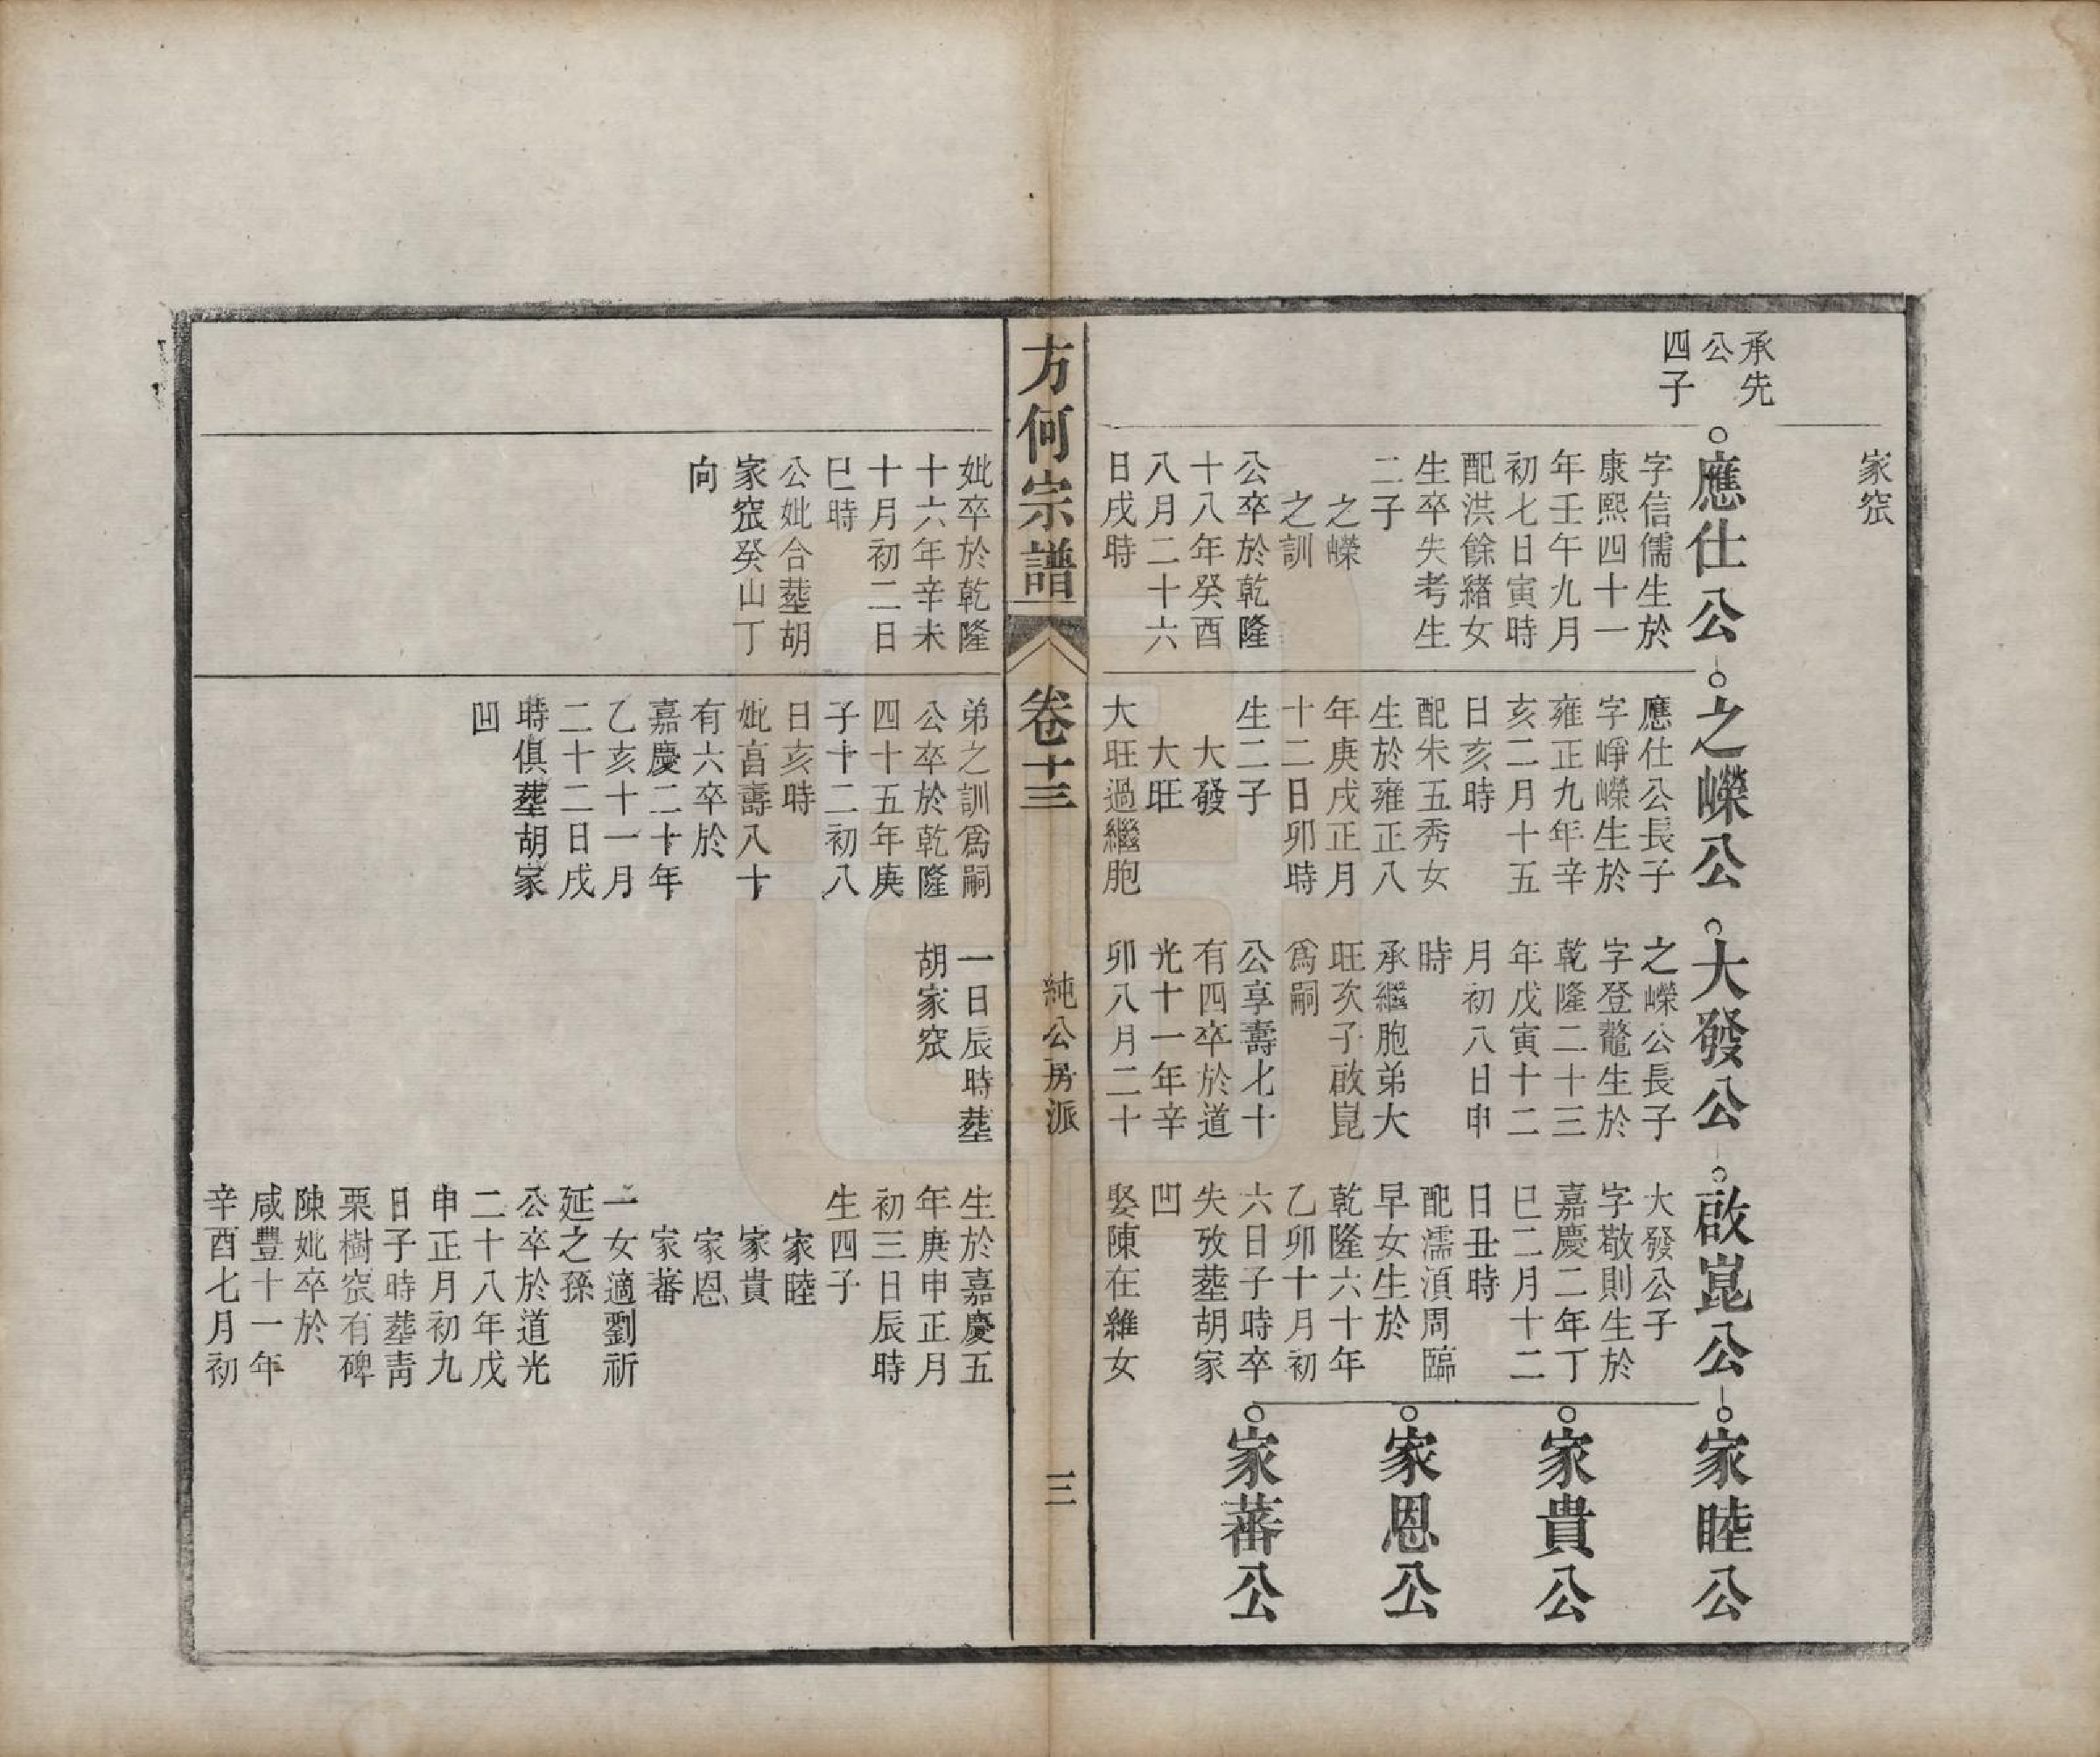 家窊
承先
公
四子
應仕公
字信儒生於
康熙四十一
年壬午九月
初七日寅時
配洪餘緒女
生卒失考生
二子
之嶸
之訓
公卒於乾隆
十八年癸酉
八月二十六
日戌時
之嶸公
應仕公長子
字崢嶸生於
雍正九年辛
亥二月十五
日亥時
配朱五秀女
生於雍正八
年庚戌正月
十二日卯時
生二子
大發
大旺
大旺過繼胞
大發公
之嶸公長子
字登鼇生於
乾隆二十三
年戊寅十二
月初八日申
時
承繼胞弟大
旺次子啟崑
爲嗣
公享壽七十
有四卒於道
光十一年辛
卯八月二十
啟崑公
大發公子
字敬則生於
嘉慶二年丁
巳二月十二
日丑時
配濡湏周臨
早女生於
乾隆六十年
乙卯十月初
六日子時卒
失攷葬胡家
凹
娶陳在維女
家睦公
家貴公
家恩公
家蕃公
方何宗譜
卷十三
純公房派
三
妣卒於乾隆
十六年辛未
十月初二日
巳時
公妣合葬胡
家窊癸山丁
向
弟之訓爲嗣
公卒於乾隆
四十五年庚
子十二初八
日亥時
妣亯壽八十
有六卒於
嘉慶二十年
乙亥十一月
二十二日戌
時俱葬胡家
凹
一日辰時葬
胡家窊
生於嘉慶五
年庚申正月
初三日辰時
生四子
家睦
家貴
家恩
家蕃
一女適劉祈
延之孫
公卒於道光
二十八年戊
申正月初九
日子時葬靑
栗樹窊有碑
陳妣卒於
咸豐十一年
辛酉七月初